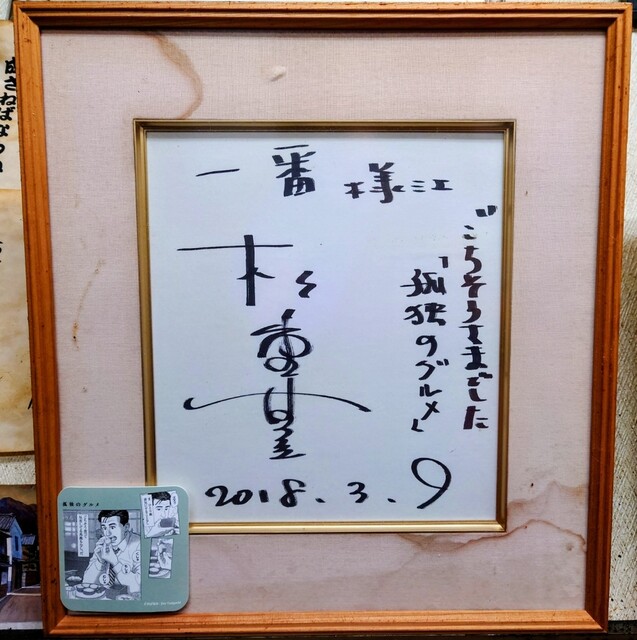 一番 様江
"ごちそうさまでした
「孤独のグルメ」
松重豊
2018.3.9
孤独のグルメ
成さねばならぬ